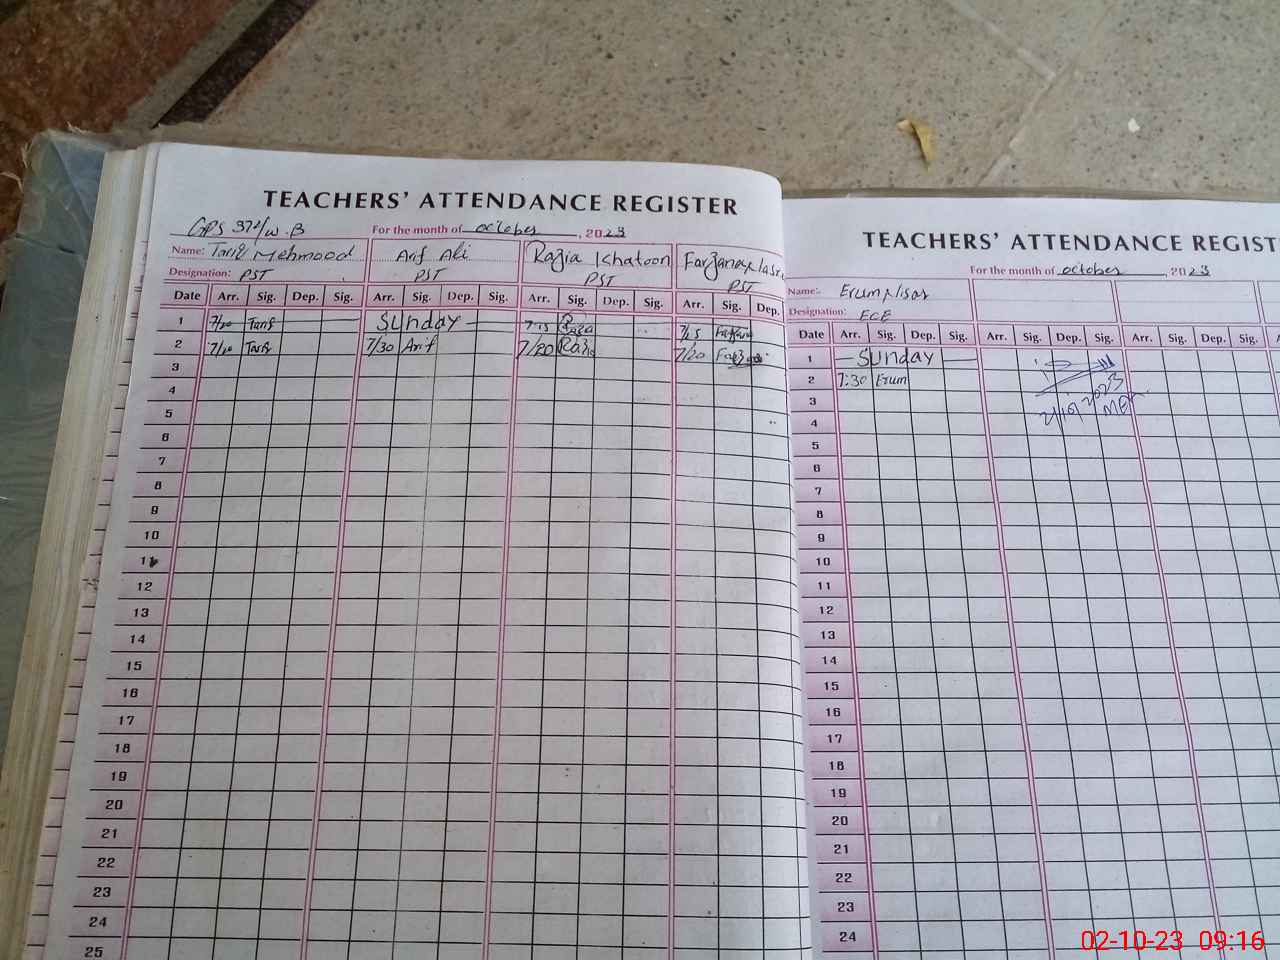 TEACHERS' ATTENDANCE REGISTER
GPS 372/w.B For the month of october, 2023
Name: Tariq Mehmood Arif Ali Razia Khatoon
Designation: PST PST PST PST
Date Arr. Sig. Dep. Sig. Arr. Sig. Dep. Sig. Arr. Sig. Dep. Sig. Arr. Sig. Dep.
1 7/20 Tariq Sunday 7:15 7/15
2 7/20 Tariq 7/30 Arif 7/20 Razia 7/20
3
4
5
6
7
8
9
10
11
12
13
14
15
16
17
18
19
20
21
22
23
24
25
TEACHERS' ATTENDANCE REGIST
For the month of october, 2023
Name: Erum Nisar
Designation: ECE
Date Arr. Sig. Dep. Sig. Arr. Sig. Dep. Sig. Arr. Sig. Dep. Sig.
1 Sunday
2 7:30 Erum
3
4
5
6
7
8
9
10
11
12
13
14
15
16
17
18
19
20
21
22
23
24
02-10-23 09:16